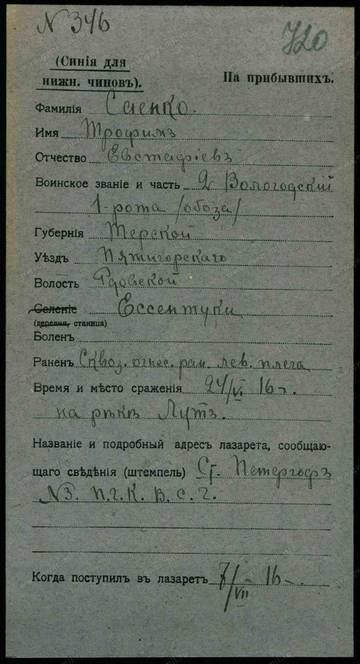 N 346
720
(Синія для
нижн. чиновъ).
На прибывшихъ.
Фамилія Саенко.
Имя Трофимъ
Отчество Евстафіевъ
Воинское званіе и часть 2 Вологодскій
1-рота /обоза/
Губернія Терской
Уѣздъ Пятигорскаго
Волость
Селеніе Ессентуки
(деревня, станица)
Боленъ
Раненъ Сквоз. огнес. ран. лев. плеча
Время и мѣсто сраженія 24/VI 16 г.
на рѣкѣ
Названіе и подробный адресъ лазарета, сообщаю-
щаго свѣдѣнія (штемпель) Ст. Петергофъ
№3. П. г. К. В. С. Г.
Когда поступилъ въ лазаретъ 7/VII - 16 г.